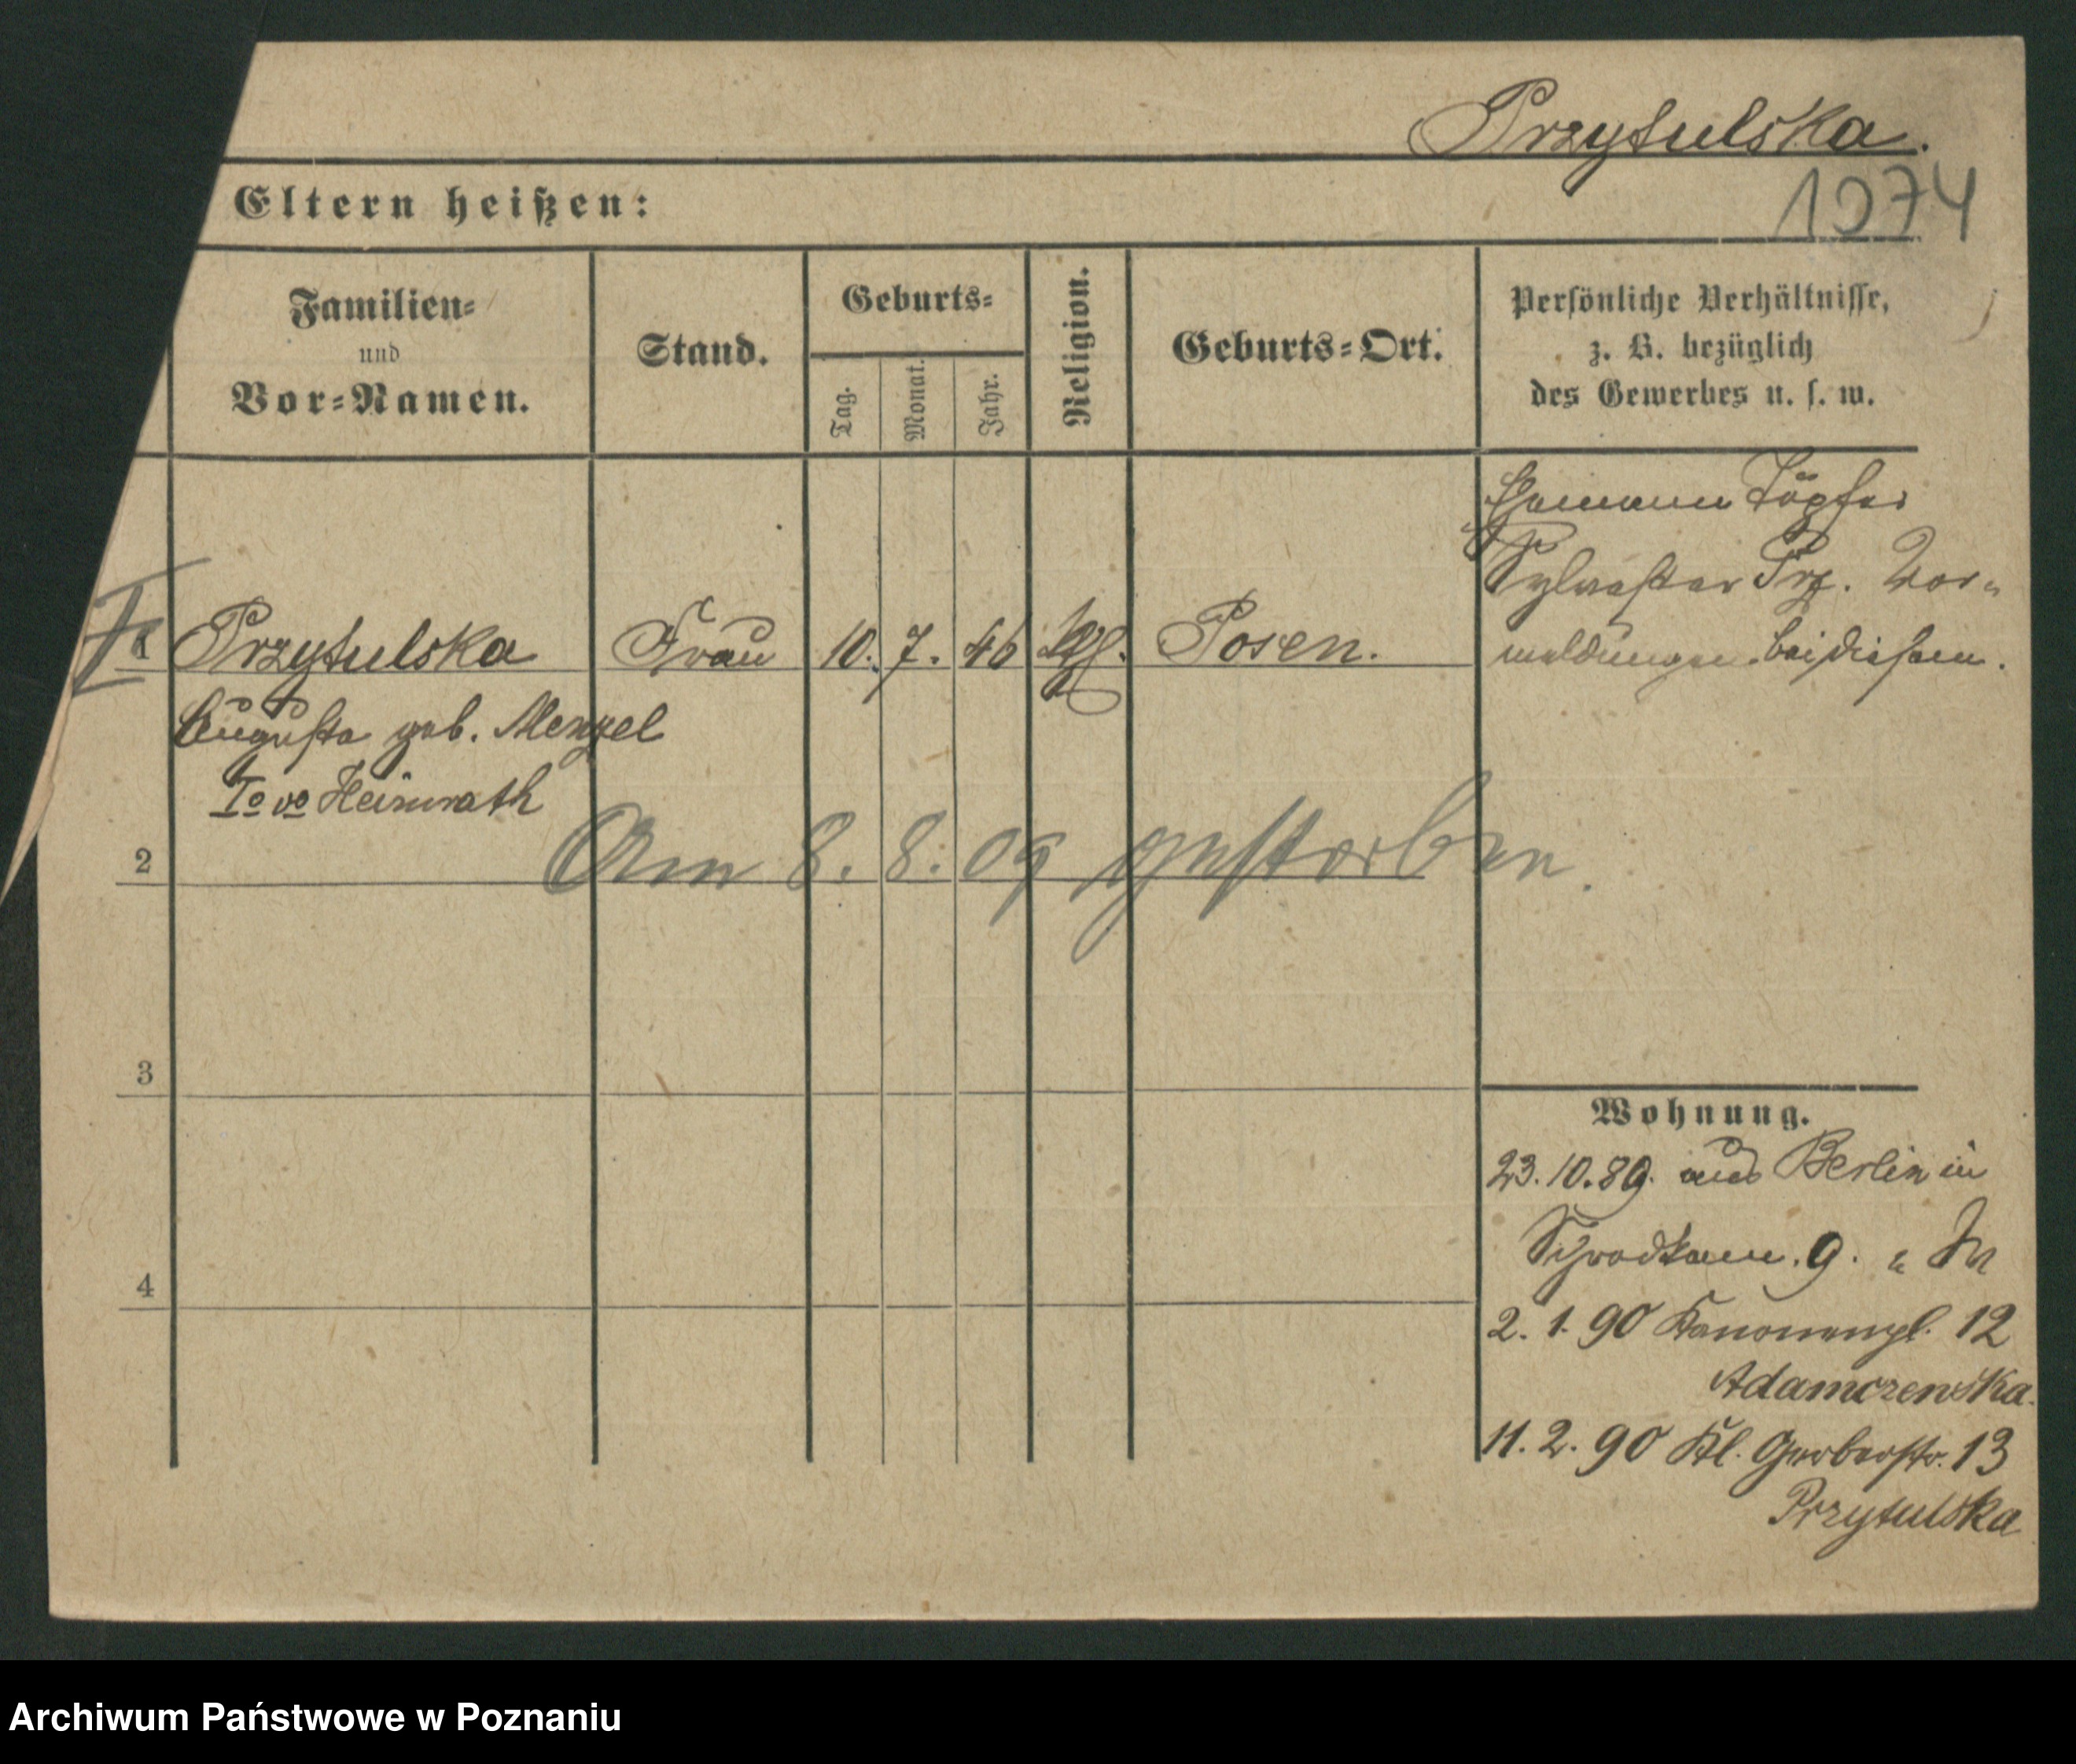 Przytulska.
1974
Eltern heißen:
Familien-
und
Vor-Namen.
Stand.
Geburts-
Tag.
Monat.
Jahr.
Religion.
Geburts-Ort.
Persönliche Verhältnisse,
z. B. bezüglich
des Gewerbes u. s. w.
Ehemann Töpfer
Sylvester Prz. Vor-
meldungen bei diesem.
1 Przytulska Frau 10. 7. 46 Posen.
Auguste geb. Menzel
Io vo Heinrath
2
Am 8. 8. 09 gestorben.
3
4
Wohnung.
23.10.89. aus Berlin in
9.
2. 1. 90 Kanonenpl. 12
Adamczewska.
11. 2. 90 Kl. Gerberstr. 13
Przytulska
Archiwum Państwowe w Poznaniu